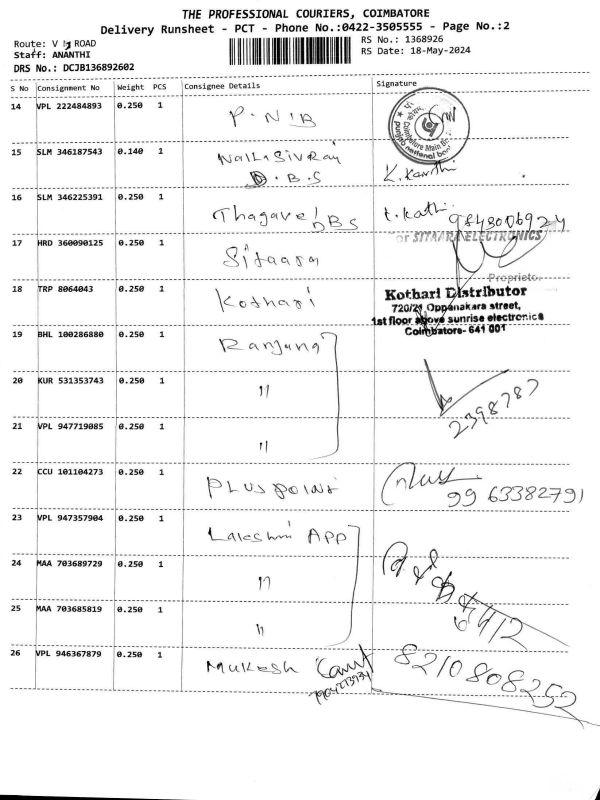 THE PROFESSIONAL COURIERS, COIMBATORE
Delivery Runsheet - PCT - Phone No.:0422-3505555 - Page No.:2
Route: V H ROAD
Staff: ANANTHI
DRS No.: DCJB136892602
RS No.: 1368926
RS Date: 18-May-2024
S No Consignment No Weight PCS Consignee Details Signature
14 VPL 222484893 0.250 1 P.N.B
Coimbatore Main Br.
punjab national bank
15 SLM 346187543 0.140 1
D.B.S
16 SLM 346225391 0.250 1 DBS
9843006924
For SITAARA ELECTRONICS
17 HRD 360090125 0.250 1 Sitaara
Proprietor
18 TRP 8064043 0.250 1 Kothari
Kothari Distributor
720/21 Oppanakara street,
1st floor above sunrise electronics
Coimbatore- 641 001
19 BHL 100286880 0.250 1 Ranjana
20 KUR 531353743 0.250 1 "
2398787
21 VPL 947719085 0.250 1 "
22 CCU 101104273 0.250 1 Pluspoint
9963382791
23 VPL 947357904 0.250 1 Lakshmi App
24 MAA 703689729 0.250 1 "
25 MAA 703685819 0.250 1 "
26 VPL 946367879 0.250 1 Mukesh
8210808252